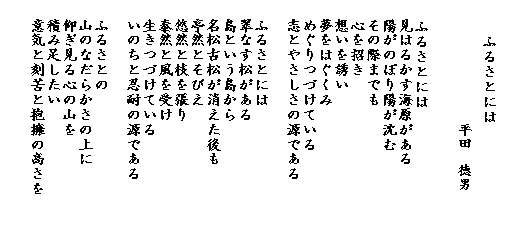 ふるさとには
平田 徳男
ふるさとには
見はるかす海原がある
陽がのぼり陽が沈む
その際までも
心を招き
想いを誘い
夢をはぐくみ
めぐりつづけている
志とやさしさの源である
ふるさとには
翠なす松がある
島という島から
名松古松が消えた後も
亭然とそびえ
悠然と枝を張り
泰然と風を受け
生きつづけている
いのちと忍耐の源である
ふるさとの
山のなだらかさの上に
仰ぎ見る心の山を
積み足したい
意気と刻苦と抱擁の高さを